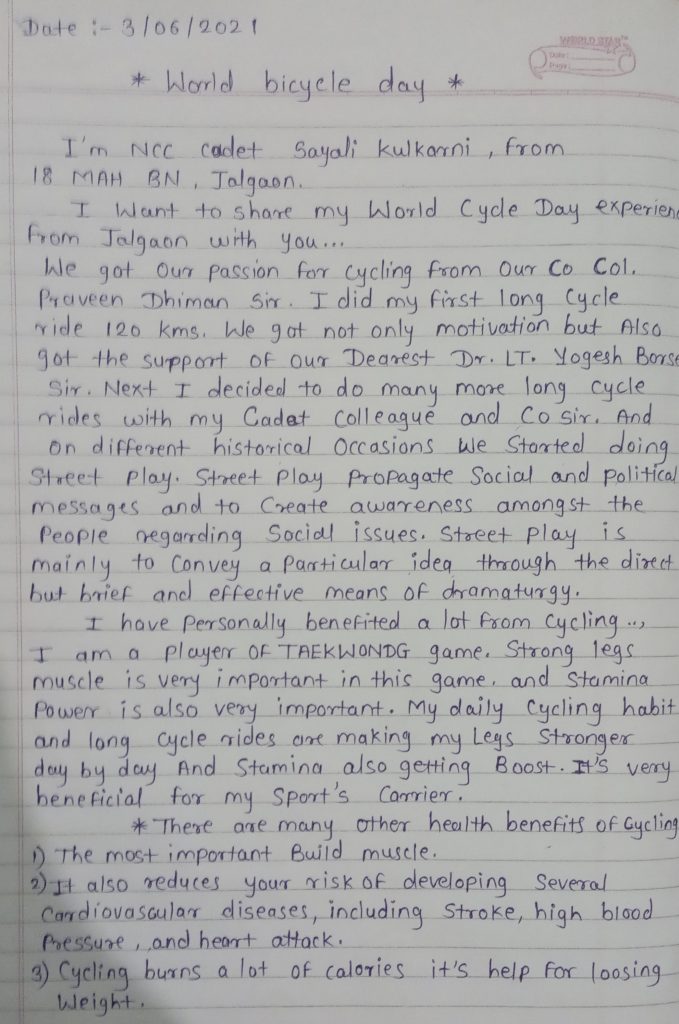 Date :- 3/06/2021
WORLD STAR
Date:
Page:
* World bicycle day *
I'm NCC cadet Sayali Kulkarni, from
18 MAH BN, Jalgaon.
I Want to share my World Cycle Day experienc
from Jalgaon with you...
We got Our passion for cycling from Our Co Col.
Praveen Dhiman Sir. I did my first long Cycle
ride 120 kms. We got not only motivation but Also
got the support of our Dearest Dr. LT. Yogesh Borse
Sir. Next I decided to do many more long cycle
rides with my Cadet Colleague and Co sir. And
on different historical Occasions We Started doing
Street Play. Street Play Propagate Social and Political
messages and to Create awareness amongst the
People regarding Social issues. Street Play is
mainly to Convey a Particular idea through the direct
but brief and effective means of dramaturgy.
I have Personally benefited a lot from Cycling ..,
I am a Player OF TAEKWONDG game. Strong legs
muscle is very important in this game, and Stamina
Power is also very important. My daily Cycling habit
and long Cycle rides are making my Legs Stronger
day by day And Stamina also getting Boost. It's very
beneficial for my Sport's Carrier.
* There are many other health benefits of Cycling
1) The most important Build muscle.
2) It also reduces your risk of developing Several
Cardiovascular diseases, including Stroke, high blood
Pressure, and heart attack.
3) Cycling burns a lot of calories it's help for loosing
Weight.